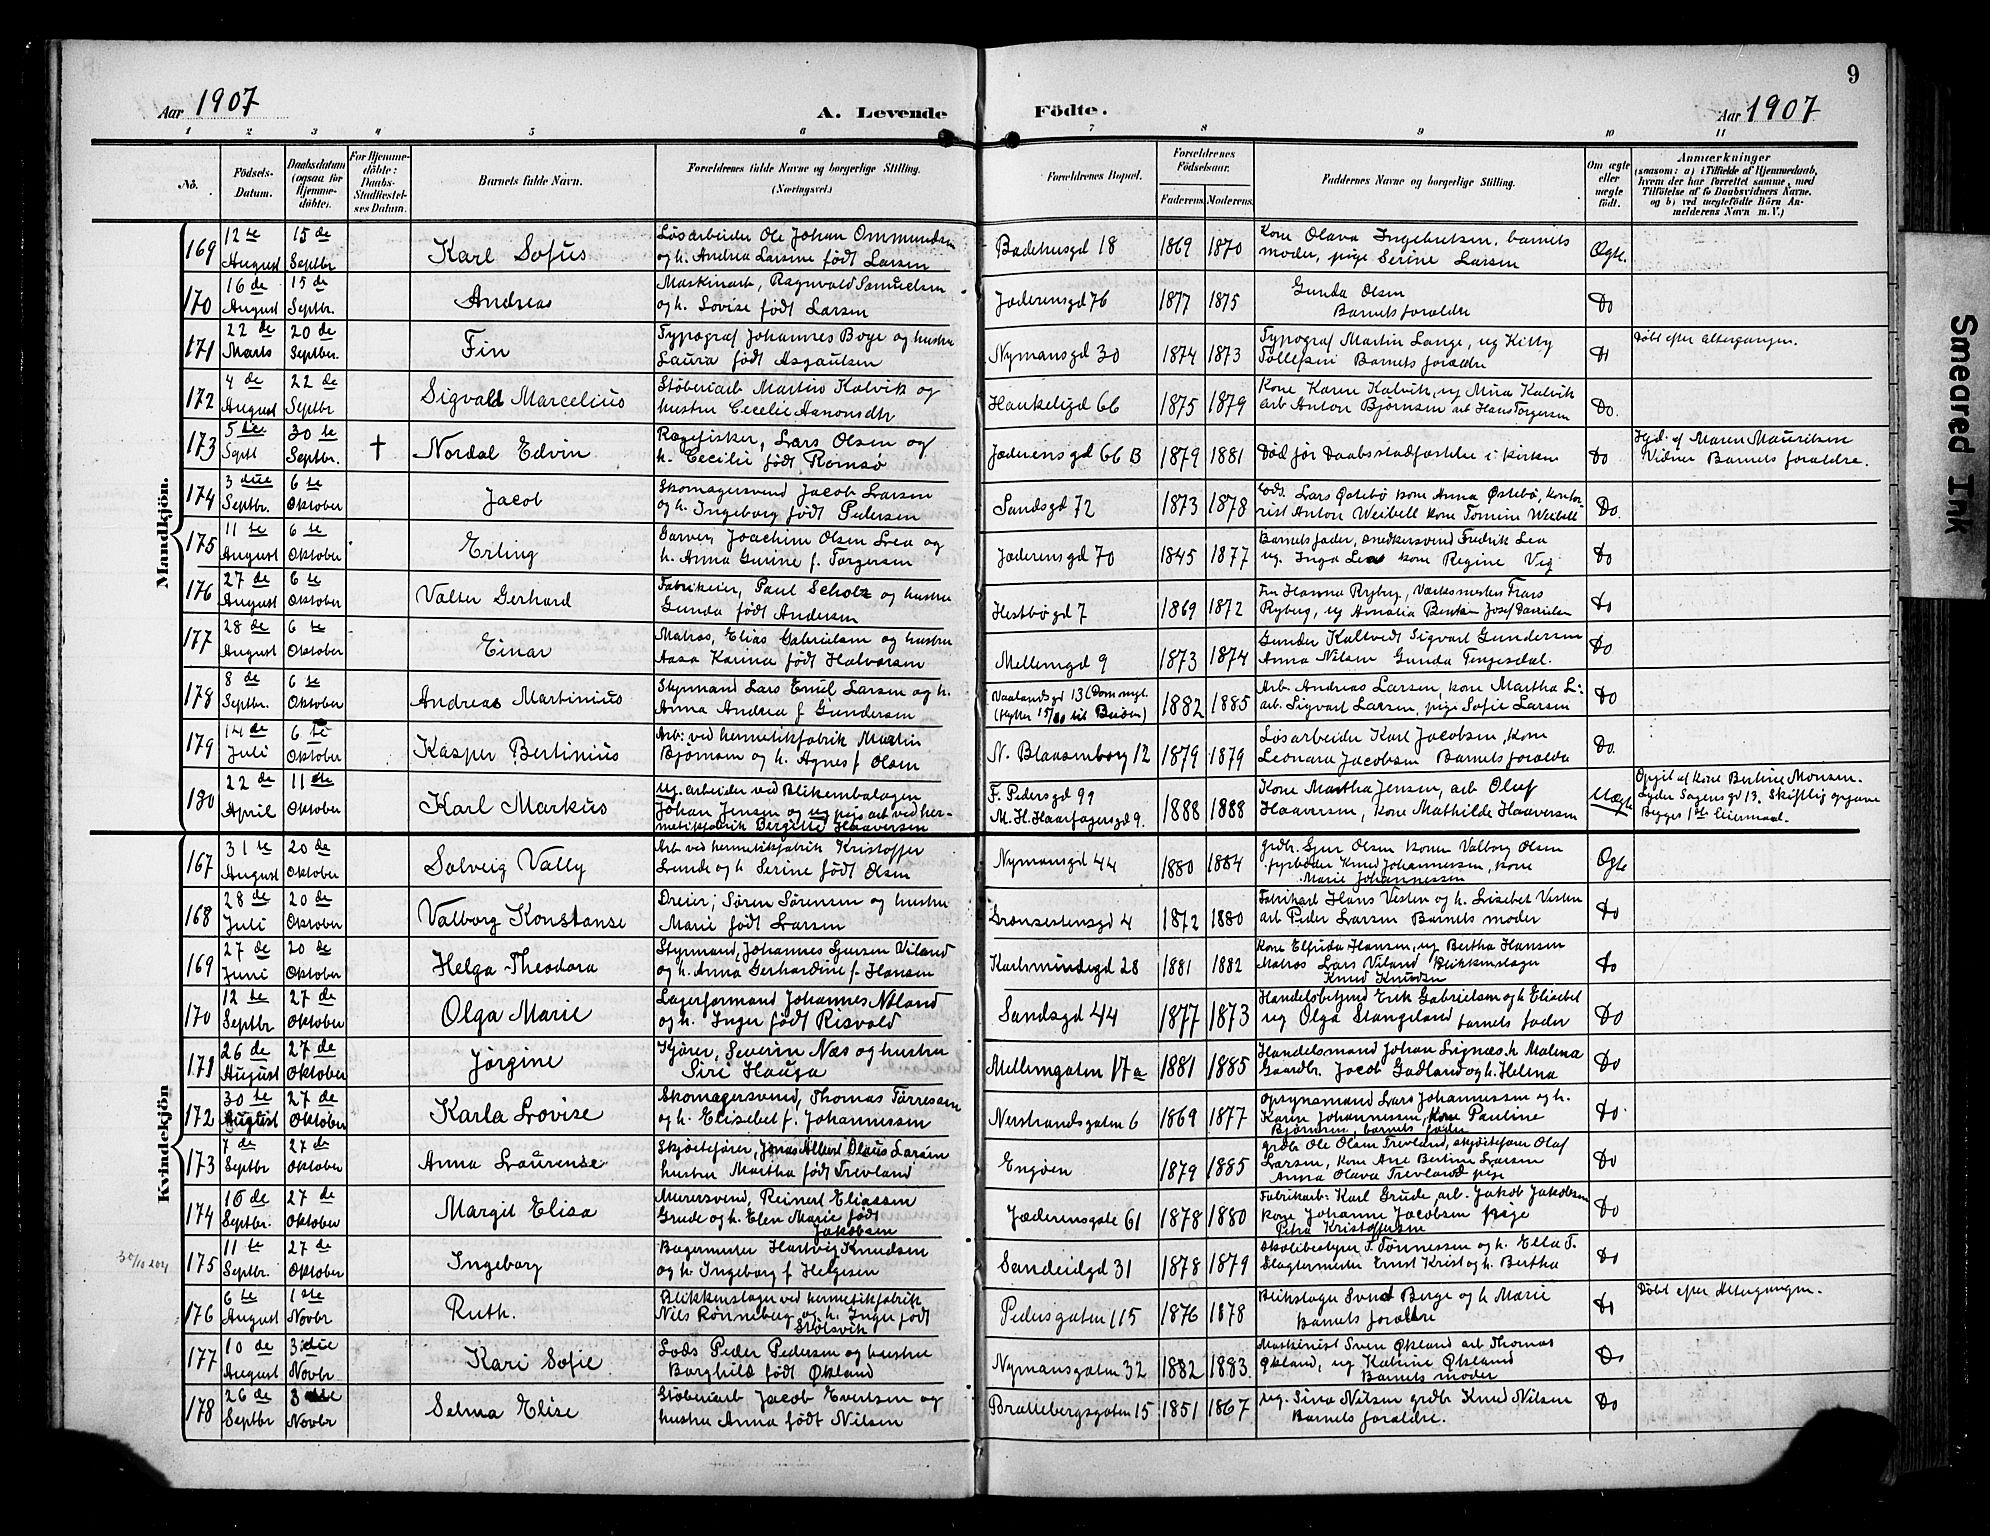 9
Aar 1907
A. Levende
Födte.
Aar 1907
1 2 3 4 5 6 7 8 9 10 11
No. Födsels-Datum. Daabsdatum (ogsaa for Hjemme-döbte). For Hjemme-döbte: Daabs-Stadfæstel-ses Datum. Barnets fulde Navn. Forældrenes fulde Navne og borgerlige Stilling. (Næringsvei.) Forældrenes Bopæl. Forældrenes Födselsaar. Faderens. Moderens. Faddernes Navne og borgerlige Stilling. Om ægte eller uægte födt. Anmærkninger (saasom: a) i Tilfælde af Hjemmedaab, hvem der har forrettet samme, med Tilföielse af to Daabsvidners Navne, og b) ved uægtefödte Börn An-melderens Navn m. V.)
Mandkjön.
169 12te August 15de Septbr Karl Sofus Løsarbeider Ole Johan Ommundsen og h. Andrea Larsine født Larsen Badehusgd 18 1869 1870 Kone Olava Ingebretsen, barnets moder, pige Serine Larsen Ægte.
170 16de August 15de Septbr. Andreas Maskinarb, Ragnvald Samuelsen og h. Lovise født Larsen Jæderensgd 76 1877 1875 Gunda Olsen Barnets forældre Do
171 22de Marts 20de Septbr. Fin Typograf Johannes Boye og hustru Laura født Asgautsen Nymansgd 30 1874 1873 Typograf Martin Lange, ug Kitty Tollefsen Barnets forældre Do Døbt efter altergangen.
172 4de August 22de Septbr Sigvald Marcelius Støberiarb Martin Kalvik og hustru Cecelie Aanonsdtr Haukeligd 66 1875 1879 Kone Karen Kalvik, ug Mina Kalvik arb Anton Bjørnsen arb Hans Torgersen Do.
173 5te Septb 30te Septbr. † Nordal Edvin Røgefisker, Lars Olsen og h. Cecilie født Rømsø Jæderensgd 66 B 1879 1881 Død før Daabsstadfæstelse i kirken Do Hjd. af Maren Mauritsen Vidner Barnets forældre.
174 3die Septbr. 6te Oktober Jacob Skomagersvend Jacob Larsen og h. Ingeborg født Pedersen Sandsgd 72 1873 1878 Lods. Lars Østebø kone Anna Østebø, kontorist Anton Weibell kone Tomine Weibell Do.
175 11te August 6te Oktober Erling Garver, Joachim Olsen Lea og h. Anna Gurine f. Torgersen Jæderensgd 70 1845 1877 Barnets fader, snedkersvend Fredrik Lea ug. Inga Lea kone Regine Vig Do
176 27de August 6te Oktober Valter Gerhard Fabrikeier, Paul Scholz og hustru Gunda født Andersen Hestbøgd 7 1869 1872 Frk Hanna Ryberg, Værksmester Frans Ryberg, ug Amalia Josef Danielsen Do
177 28de August 6te Oktober Einar Matros, Elias Gabrielsen og hustru Aasa Karina født Halvorsen Mellemgd 9 1873 1874 Gunder Kaltvedt Sigvart Gundersen Anna Nilsen Gunda Tengesdal. Do
178 8de Septbr. 6te Oktober Andreas Martinius Styrmand Lars Emil Larsen og h. Anna Andrea f Gundersen Vaalandsgd 13 (Dommgt. (flytter 15/10 til Buøen) 1882 1885 Arb. Andreas Larsen, kone Martha L: arb. Sigvart Larsen, pige Sofie Larsen Do
179 14de Juli 6te Oktober Kasper Bertinius Arb: ved hermetikfabrik Martin Bjørnsen og h. Agnes f Olsen N. Blaasenborg 12 1879 1879 Løsarbeider Karl Jacobsen, kone Leonara Jacobsen Barnets forældre Do
180 22de April 11te Oktober Karl Markus Ug. arbeider ved Blikemballagen Johan Jensen og ug pige arb ved hermetikfabrik Bergitte Haaversen F. Pedersgd 99 M. H. Haarfagersgd 9. 1888 1888 Kone Martha Jensen, arb Oluf Haaversen, kone Mathilde Haaversen Uægte Opgit af kone Bertine Monsen. Lyder Sagensgd 13. Skriftlig opgave Begges 1ste leiermaal.
Kvindekjön
167 31te August 20de Oktober Solveig Vally Arb ved hermetikfabrik Kristoffer Lunde og h Serine født Olsen Nymansgd 44 1880 1884 grdb. Sjur Olsen konen Valborg Olsen fyrbøder Knud Johannessen, kone Marie Johannessen Ægte
168 28de Juli 20de Oktober Valborg Konstanse Dreier; Søren Sørensen og hustru Marie født Larsen Grønsestensgd 4 1872 1880 Fabrikarb Hans Vesten og h. Lisebet Vesten arb Peder Larsen Barnets moder Do
169 27de Juni 20de Oktober Helga Theodora Styrmand, Johannes Gjersen Viland og h. Anna Gerhardine f. Hansen Karlsmindegd 28 1881 1882 Kone Elfrida Hansen, ug Bertha Hansen Matros Lars Viland Blikkenslager Knud Knudsen Do
170 12te Septbr 27de Oktober Olga Marie Lagerformand Johannes Nøland og h. Inger født Risvold Sandsgd 44 1877 1873 Handelsbetjend Erik Gabrielsen og h Elisebet ug Olga Stangeland barnets fader Do
171 26de August 27de Oktober Jørgine Kjører, Severin Næs og hustru Siri Hauga Mellemgaten 17a 1881 1885 Handelsmand Johan Lignæs h Malena Gaardbr. Jacob Gadland og h. Helena Do
172 30te August 27de Oktober Karla Lovise Skomagersvend, Thomas Tørressen og h. Elisebet f. Johannessen Nerstrandsgaten 6 1869 1877 Opsynsmand Lars Johannessen og h. Karen Johannessen, kone Pauline Bjørnsen, barnets fader Do.
173 7de Septbr 27de Oktober Anna Laurense Skjøitefører, Jonas Albert Olaus Larsen hustru Martha født Trevland Engøen 1879 1885 grdb Ole Olsen Trevland, skjøitefører Olaf Larsen, kone Ane Bertine Larsen Anna Olava Trevland pige Do
174 16de Septbr. 27de Oktober Margit Elisa Murersvend, Reinert Eliassen Grude og h. Elen Marie født Jakobsen Jæderensgate 61 1878 1880 Fabrikarb: Karl Grude, arb. Jakob Jakobsen kone Johanne Jacobsen pige Petra Kristoffersen Do
175 11te Septbr. 27de Oktober Ingeborg Bagermester Hartvig Knudsen og h. Ingeborg f Helgesen Sandeidgd 31 1878 1879 Skolebestyrer T. Tønnessen og h. Ella T. Slagtermester Ernst Krist og h. Bertha Do
176 6te August 1ste Novbr Ruth. Blikkenslager ved hermetikfabrik Nils Rønneberg og h. Inger født Stølsvik Pedersgaten 115 1876 1878 Blikslager Svend Berge og h Marie Barnets forældre Do Døbt efter Altergangen.
177 10de August 3die Novbr. Kari Sofie Lods Peder Pedersen og hustru Borghild født Økland Nymansgaten 32 1882 1883. Maskinist Sven Økland arb Thomas Økland, ug Katrine Økland Barnets moder Do
178 26de Septbr 3die Novbr Selma Elise Støberiarb Jacob Evertsen og hustru Anna født Nilsen Brattebergsgaten 15 1851 1867 ug. Sina Nilsen grdbr Knud Nilsen Barnets forældre. Do
Smeared Ink